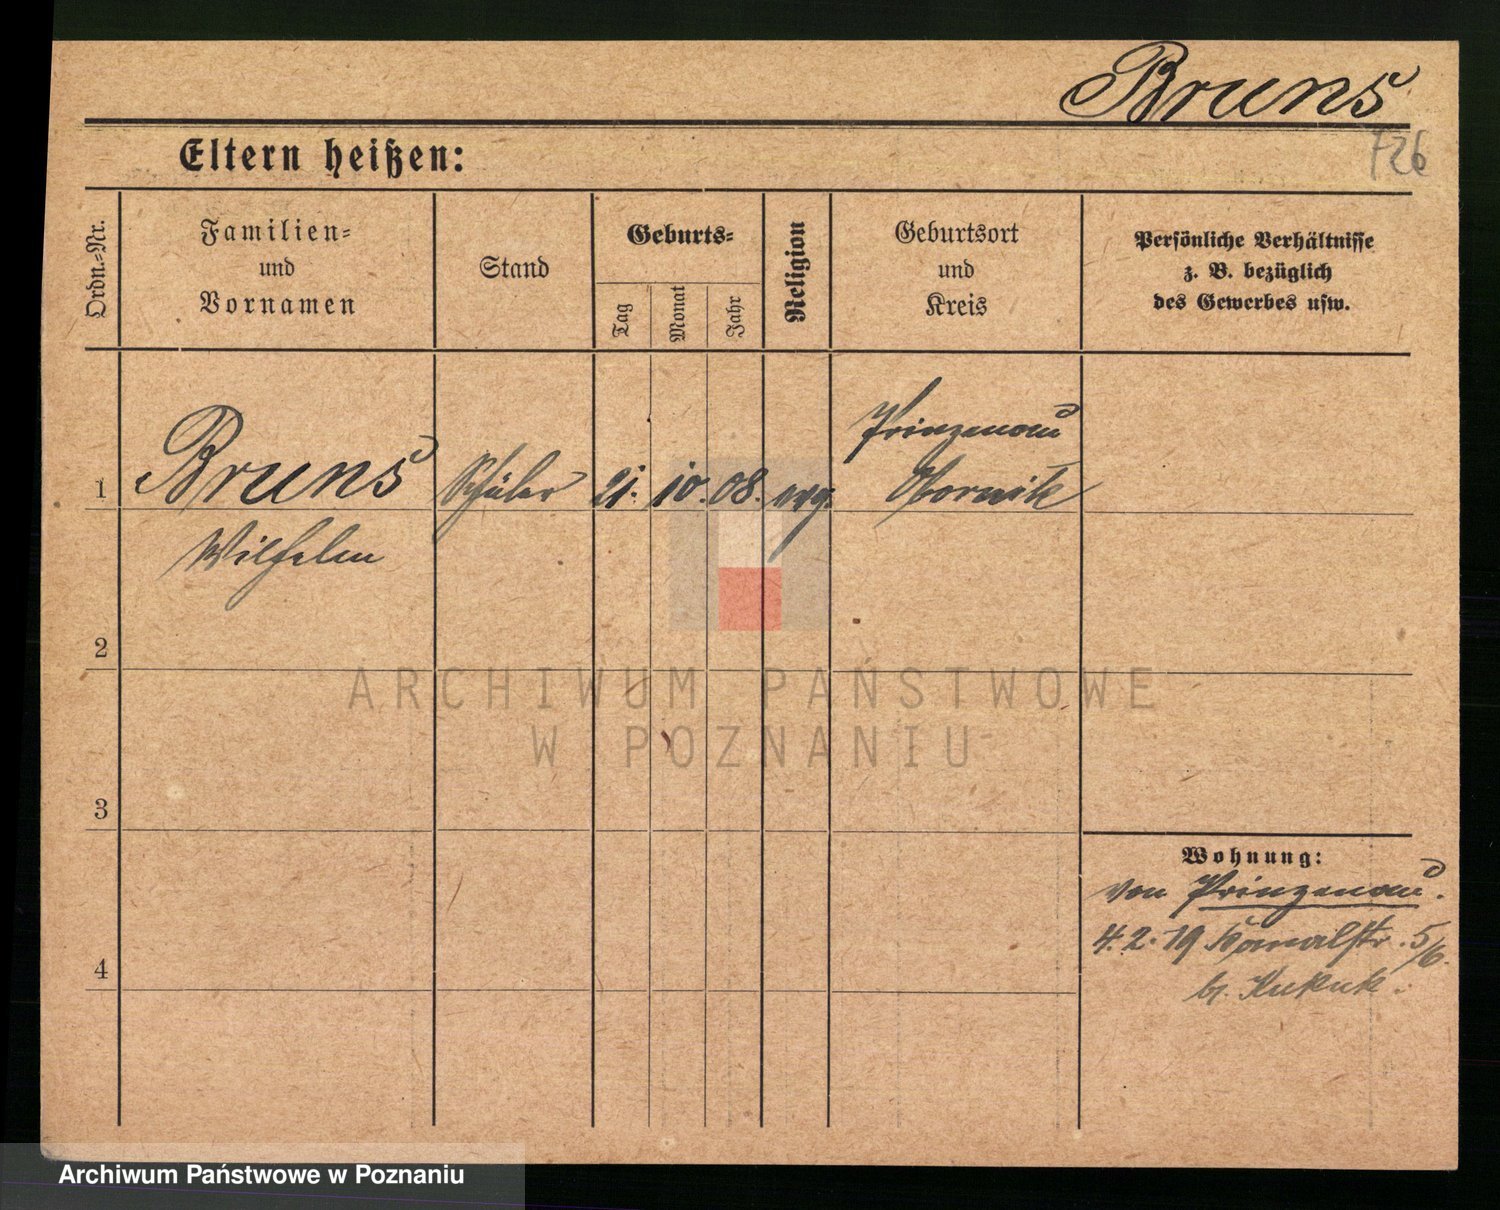 Bruns
F26
Eltern heißen:
Ordn.-Nr.
Familien-
und
Vornamen
Stand
Geburts-
Tag
Monat
Jahr
Religion
Geburtsort
und
Kreis
Persönliche Verhältnisse
z. B. bezüglich
des Gewerbes usw.
Prinzenau
1 Bruns Schüler 21. 10. 08. evg. Obornik
Wilhelm
2
ARCHIWUM PAŃSTWOWE
W POZNANIU
3
Wohnung:
von Prinzenau.
4.2.19 Kanalstr. 5/6.
b. Kukuk.
4
Archiwum Państwowe w Poznaniu